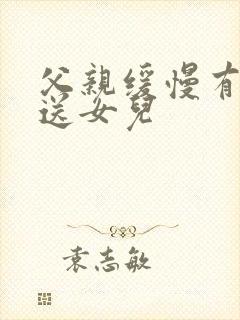 父親缓慢有
送女兒
袁志敏